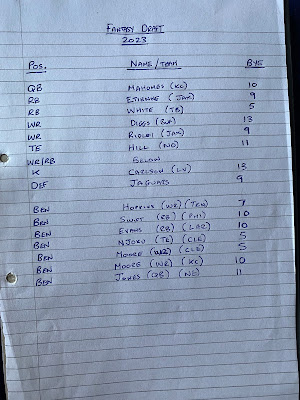 FANTASY DRAFT
2023
POS. NAME/TEAM BYE
QB MAHOMES (KC) 10
RB ETIENNE (JAX) 9
RB WHITE (TB) 5
WR DIGGS (BUF) 13
WR RIDLEY (JAX) 9
TE HILL (NO) 11
WR/RB BELOW
K CARLSON (LV) 13
DEF JAGUARS 9
BEN HOPKINS (WR) (TEN) 7
BEN SWIFT (RB) (PHI) 10
BEN EVANS (RB) (LAR) 10
BEN NJOKU (TE) (CLE) 5
BEN MOORE (WR) (CLE) 5
BEN MOORE (WR) (KC) 10
BEN JONES (QB) (NE) 11